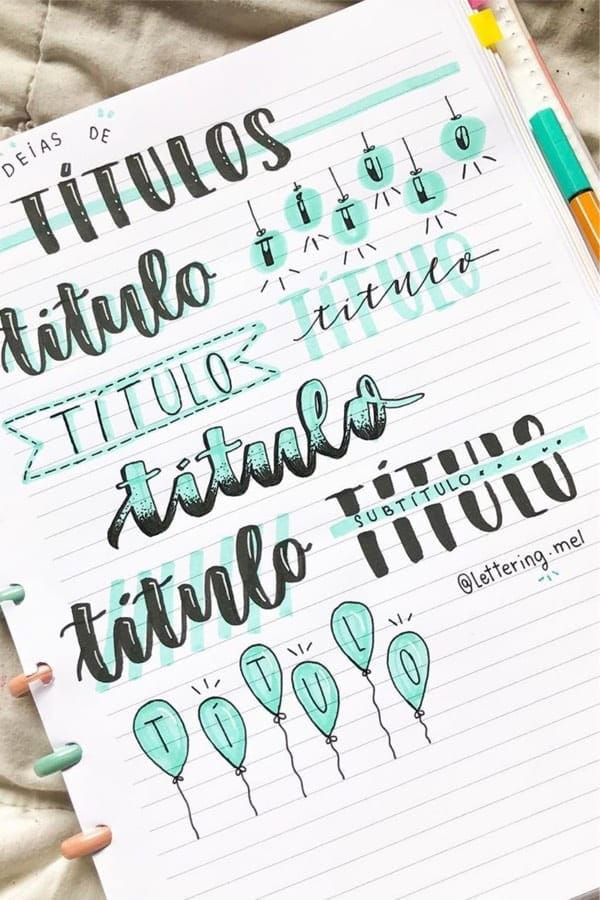 IDEIAS DE
TÍTULOS
título
TÍTULO
TÍTULO
título
TÍTULO
título
TÍTULO
SUBTÍTULO
título
@lettering.mel
TÍTULO